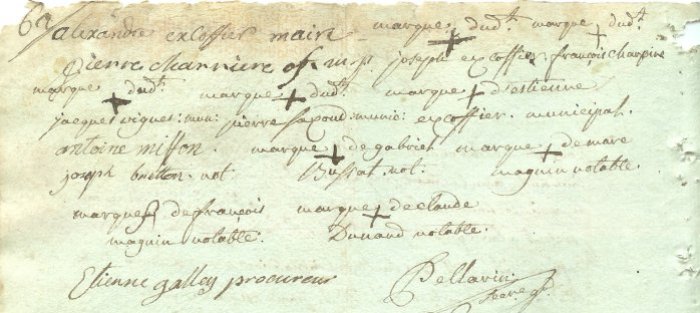 alexandre excoffier maire marque + dud.t marque + dud.t
pierre charriere of. mp. joseph excoffier françois charpine
marque + dud.t marque + dud.t marque + d'estienne
jacques viguet: mun: pierre sapod: munic: excoffier. municipal.
antoine miffon. marque + de gabriel marque + de marc
joseph button. not. Bussat. not. magnin notable.
marque de françois marque + de claude
magnin notable. Dunand notable.
Etienne galley procureur Pellarin